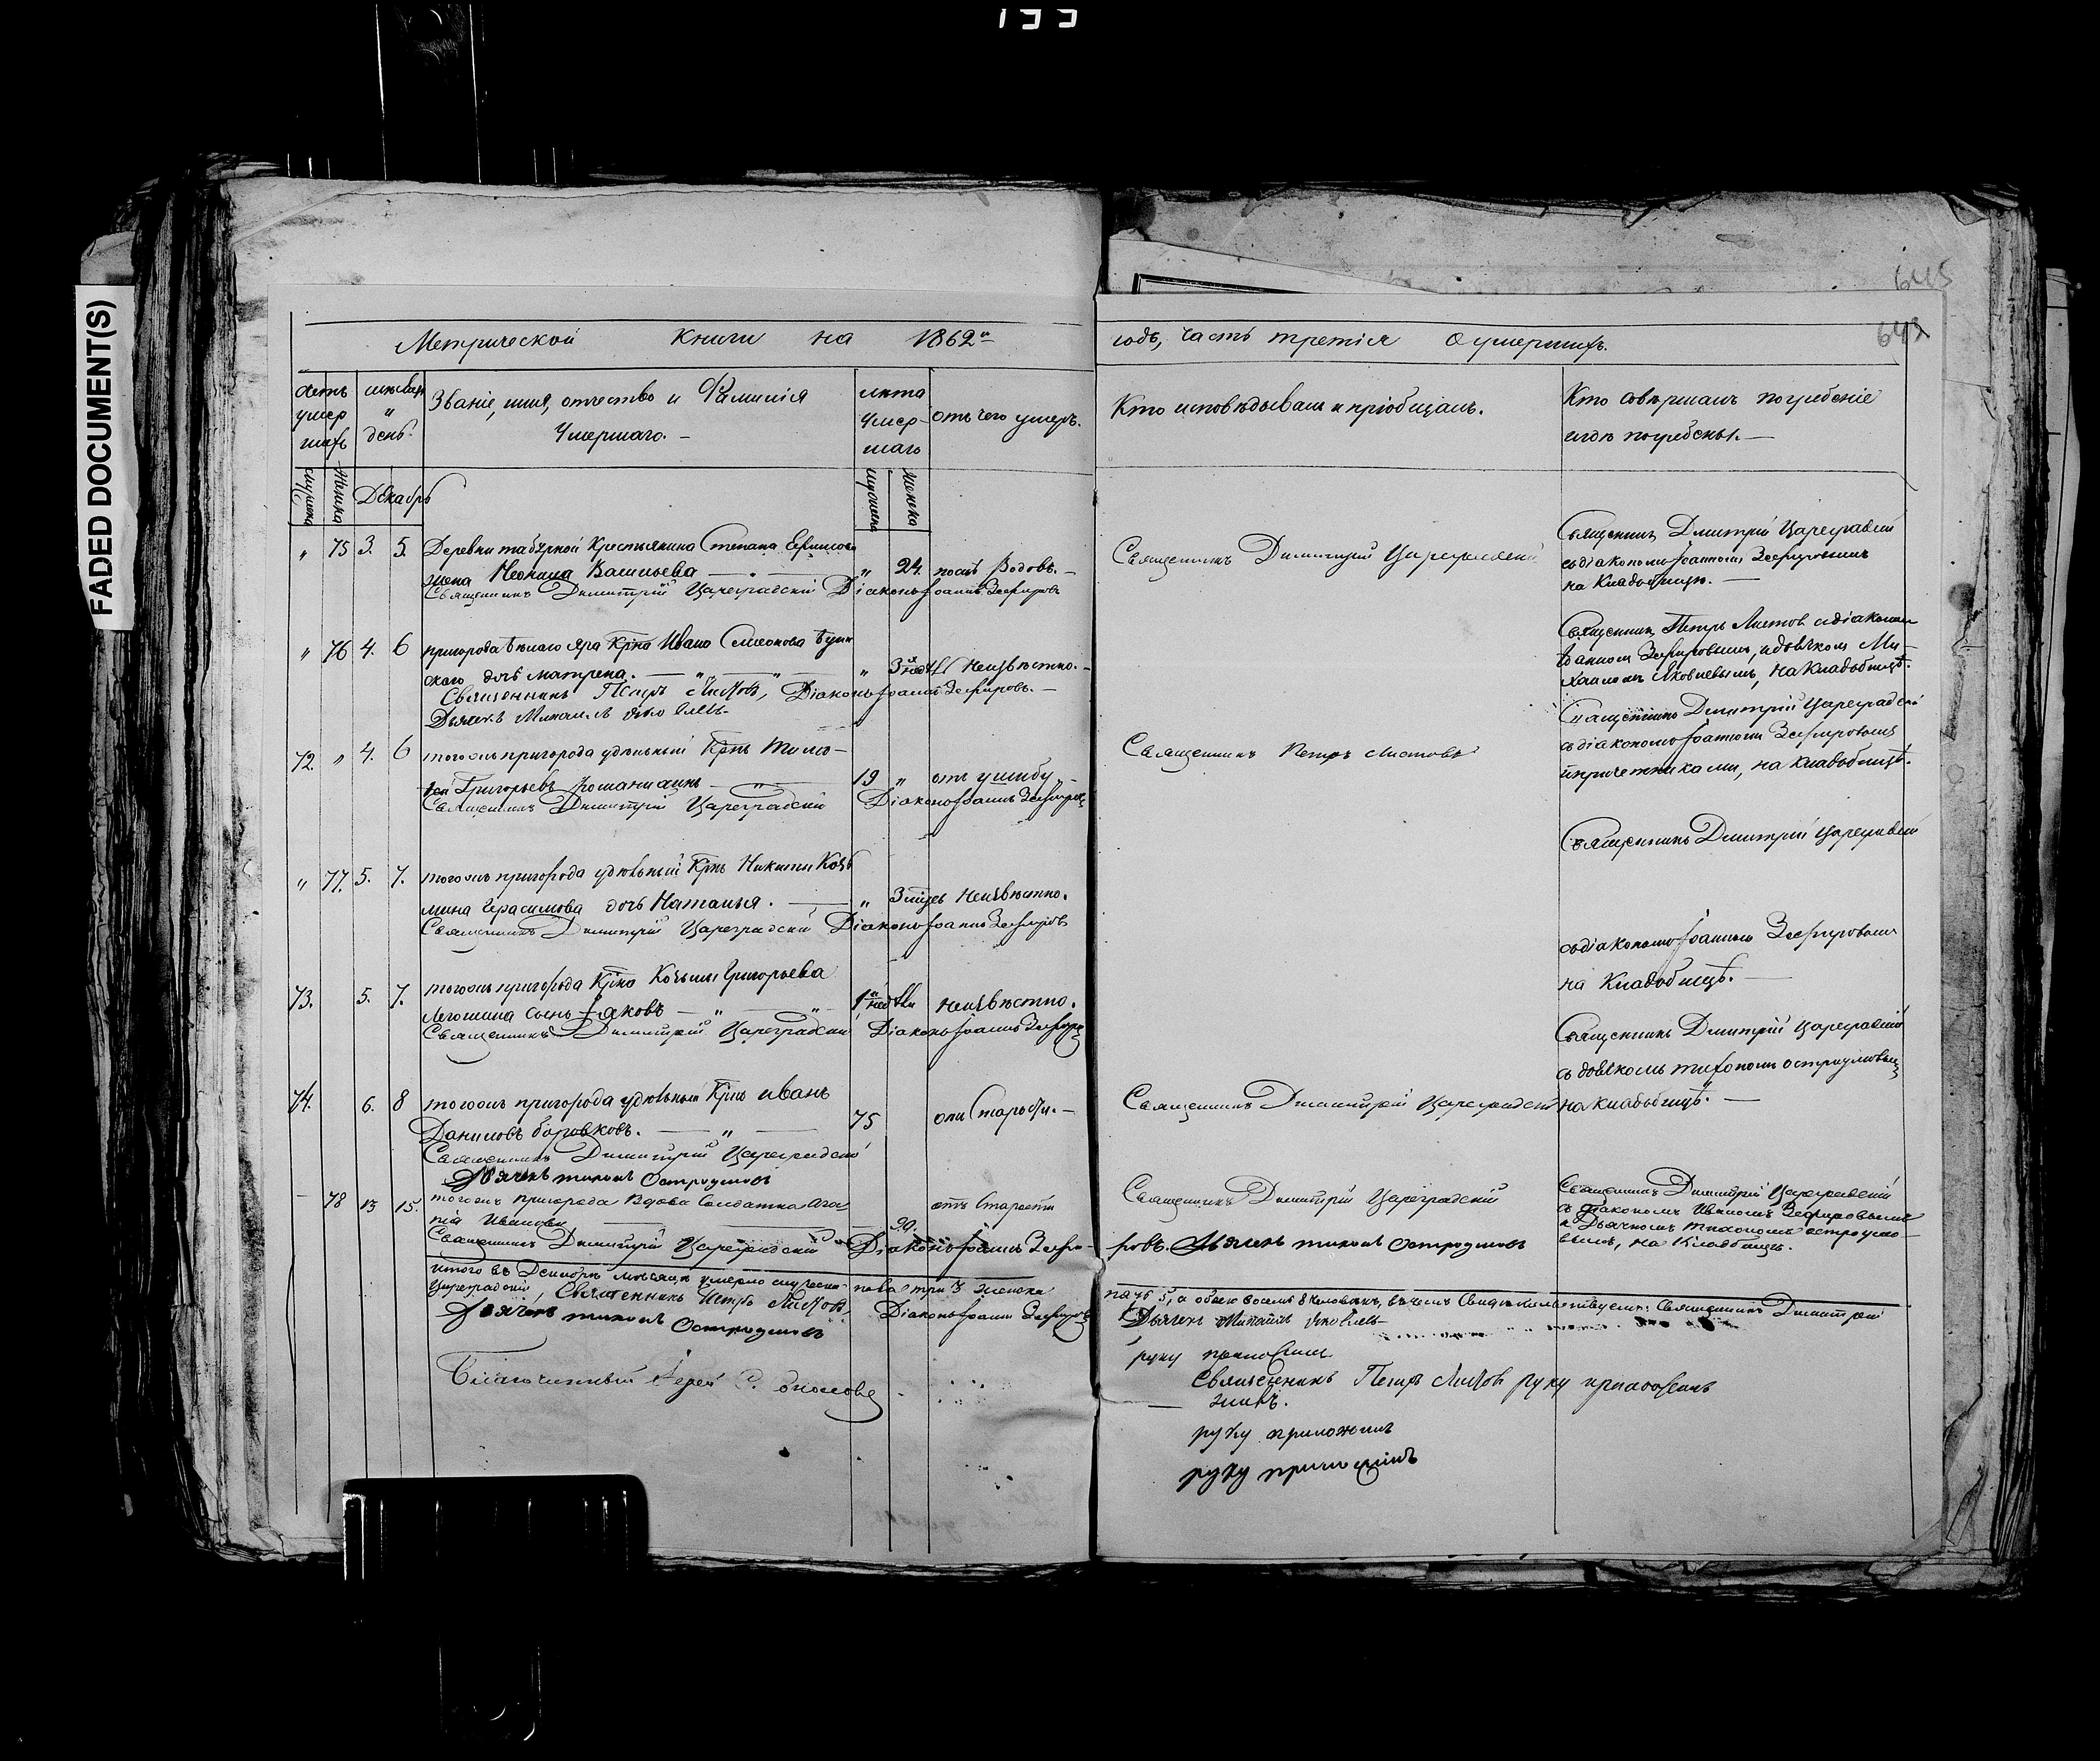 133
FADED DOCUMENT(S)
645
642
Метрической Книги на 1862й
годъ, часть третія О умершихъ.
Счетъ умер шихъ
мѣсяцъ и день.
Званіе, имя, отчество и Фамилія Умершаго. –
лѣта Умер- шаго
отъ чего умеръ.
Кто исповѣдывалъ и пріобщалъ.
Кто совершалъ погребеніе и гдѣ погребены. —
мужска
женска
Декабрь
мужеска
женска
„ 75 3. 5. Деревни Крестьянина Степана
жена Васильева — „ 24. послѣ Родовъ. –
Священникъ Димитрій Цареградскій Діаконъ Іоаннъ Зефировъ
Священникъ Димитрій Цареградскій
Священникъ Дмитрій Цареградскій
съ діакономъ Іоанномъ Зефировымъ
на Кладбищѣ. —
„ 76 4. 6 пригорода бѣлаго яра Крнъ Ивана Симеонова
дочь матрена. — „ — „ 3й недѣли Неизвѣстно. –
Священникъ Петръ Листовъ, Діаконъ Іоаннъ Зефировъ. –
Дьячекъ Михаилъ Яковлевъ
Священник Петръ Листов съ діаконом
Іоанном Зефировымъ, и дьячком Ми-
хаилом Яковлевымъ, на Кладбищѣ.
72. „ 4. 6 тогожъ пригорода удѣльный Крнъ Тимо-
фей Григорьевъ — „ — 19 „ отъ ушибу –
Священникъ Димитрій Цареградскій Діаконъ Іоаннъ Зефировъ
Священникъ Петръ Листовъ
Священникъ Дмитрій Цареградскій
съ діакономъ Іоанномъ Зефировымъ
и причетниками, на кладбищѣ.
„ 77. 5. 7. тогожъ пригорода удѣльный Крнъ Никиты Козь
мина Герасимова дочь Наталья. — „ 3 мцсъ Неизвѣстно.
Священникъ Димитрій Цареградскій Діаконъ Іоаннъ Зефировъ
Священникъ Дмитрій Цареградскій
съ діакономъ Іоанномъ Зефировымъ
на Кладбищѣ. —
73. 5. 7. тогожъ пригорода Крна Козьмы Григорьева
сынъ Іаковъ — „ — „ 1й недѣли Неизвѣстно.
Священникъ Димитрій Цареградскій Діаконъ Іоаннъ Зефировъ
Священникъ Дмитрій Цареградскій
съ дьячкомъ тихономъ остроумовымъ
на кладбищѣ. —
74. 6. 8 тогожъ пригорода удѣльный Крнъ иванъ
Даниловъ боровковъ. — „ — 75 отъ Старости. –
Священникъ Димитрій Цареградскій
Дьячекъ тихонъ Остроумовъ
Священникъ Димитрій Цареградскій
– 78 13 15. тогожъ пригорода Вдова Солдатка Ага
пія Иванова — 90. отъ Старости
Священникъ Димитрій Цареградскій Діаконъ Іоаннъ Зефи-
ровъ. Дьячекъ тихонъ Остроумовъ
Священникъ Димитрій Цареградскій
Священникъ Димитрій Цареградскій
съ діакономъ Иваномъ Зефировымъ
и Дьячкомъ Тихономъ остроумо-
вымъ, на Кладбищѣ.
итого въ Декабрѣ мѣсяцѣ умерло мужеска пола три 3 женска
пять 5, а обоего восемь 8 человѣкъ, въ чемъ Свидѣтельствуемъ: Священникъ Димитрій
Цареградскій, Священникъ Петръ Листовъ, Діаконъ Іоаннъ Зефировъ
Дьячекъ Михаилъ Яковлевъ
Дьячекъ тихонъ Остроумовъ
руку приложилъ
Священникъ Петръ Листовъ руку приложилъ
руку приложилъ
руку приложилъ
Благочинный Іерей